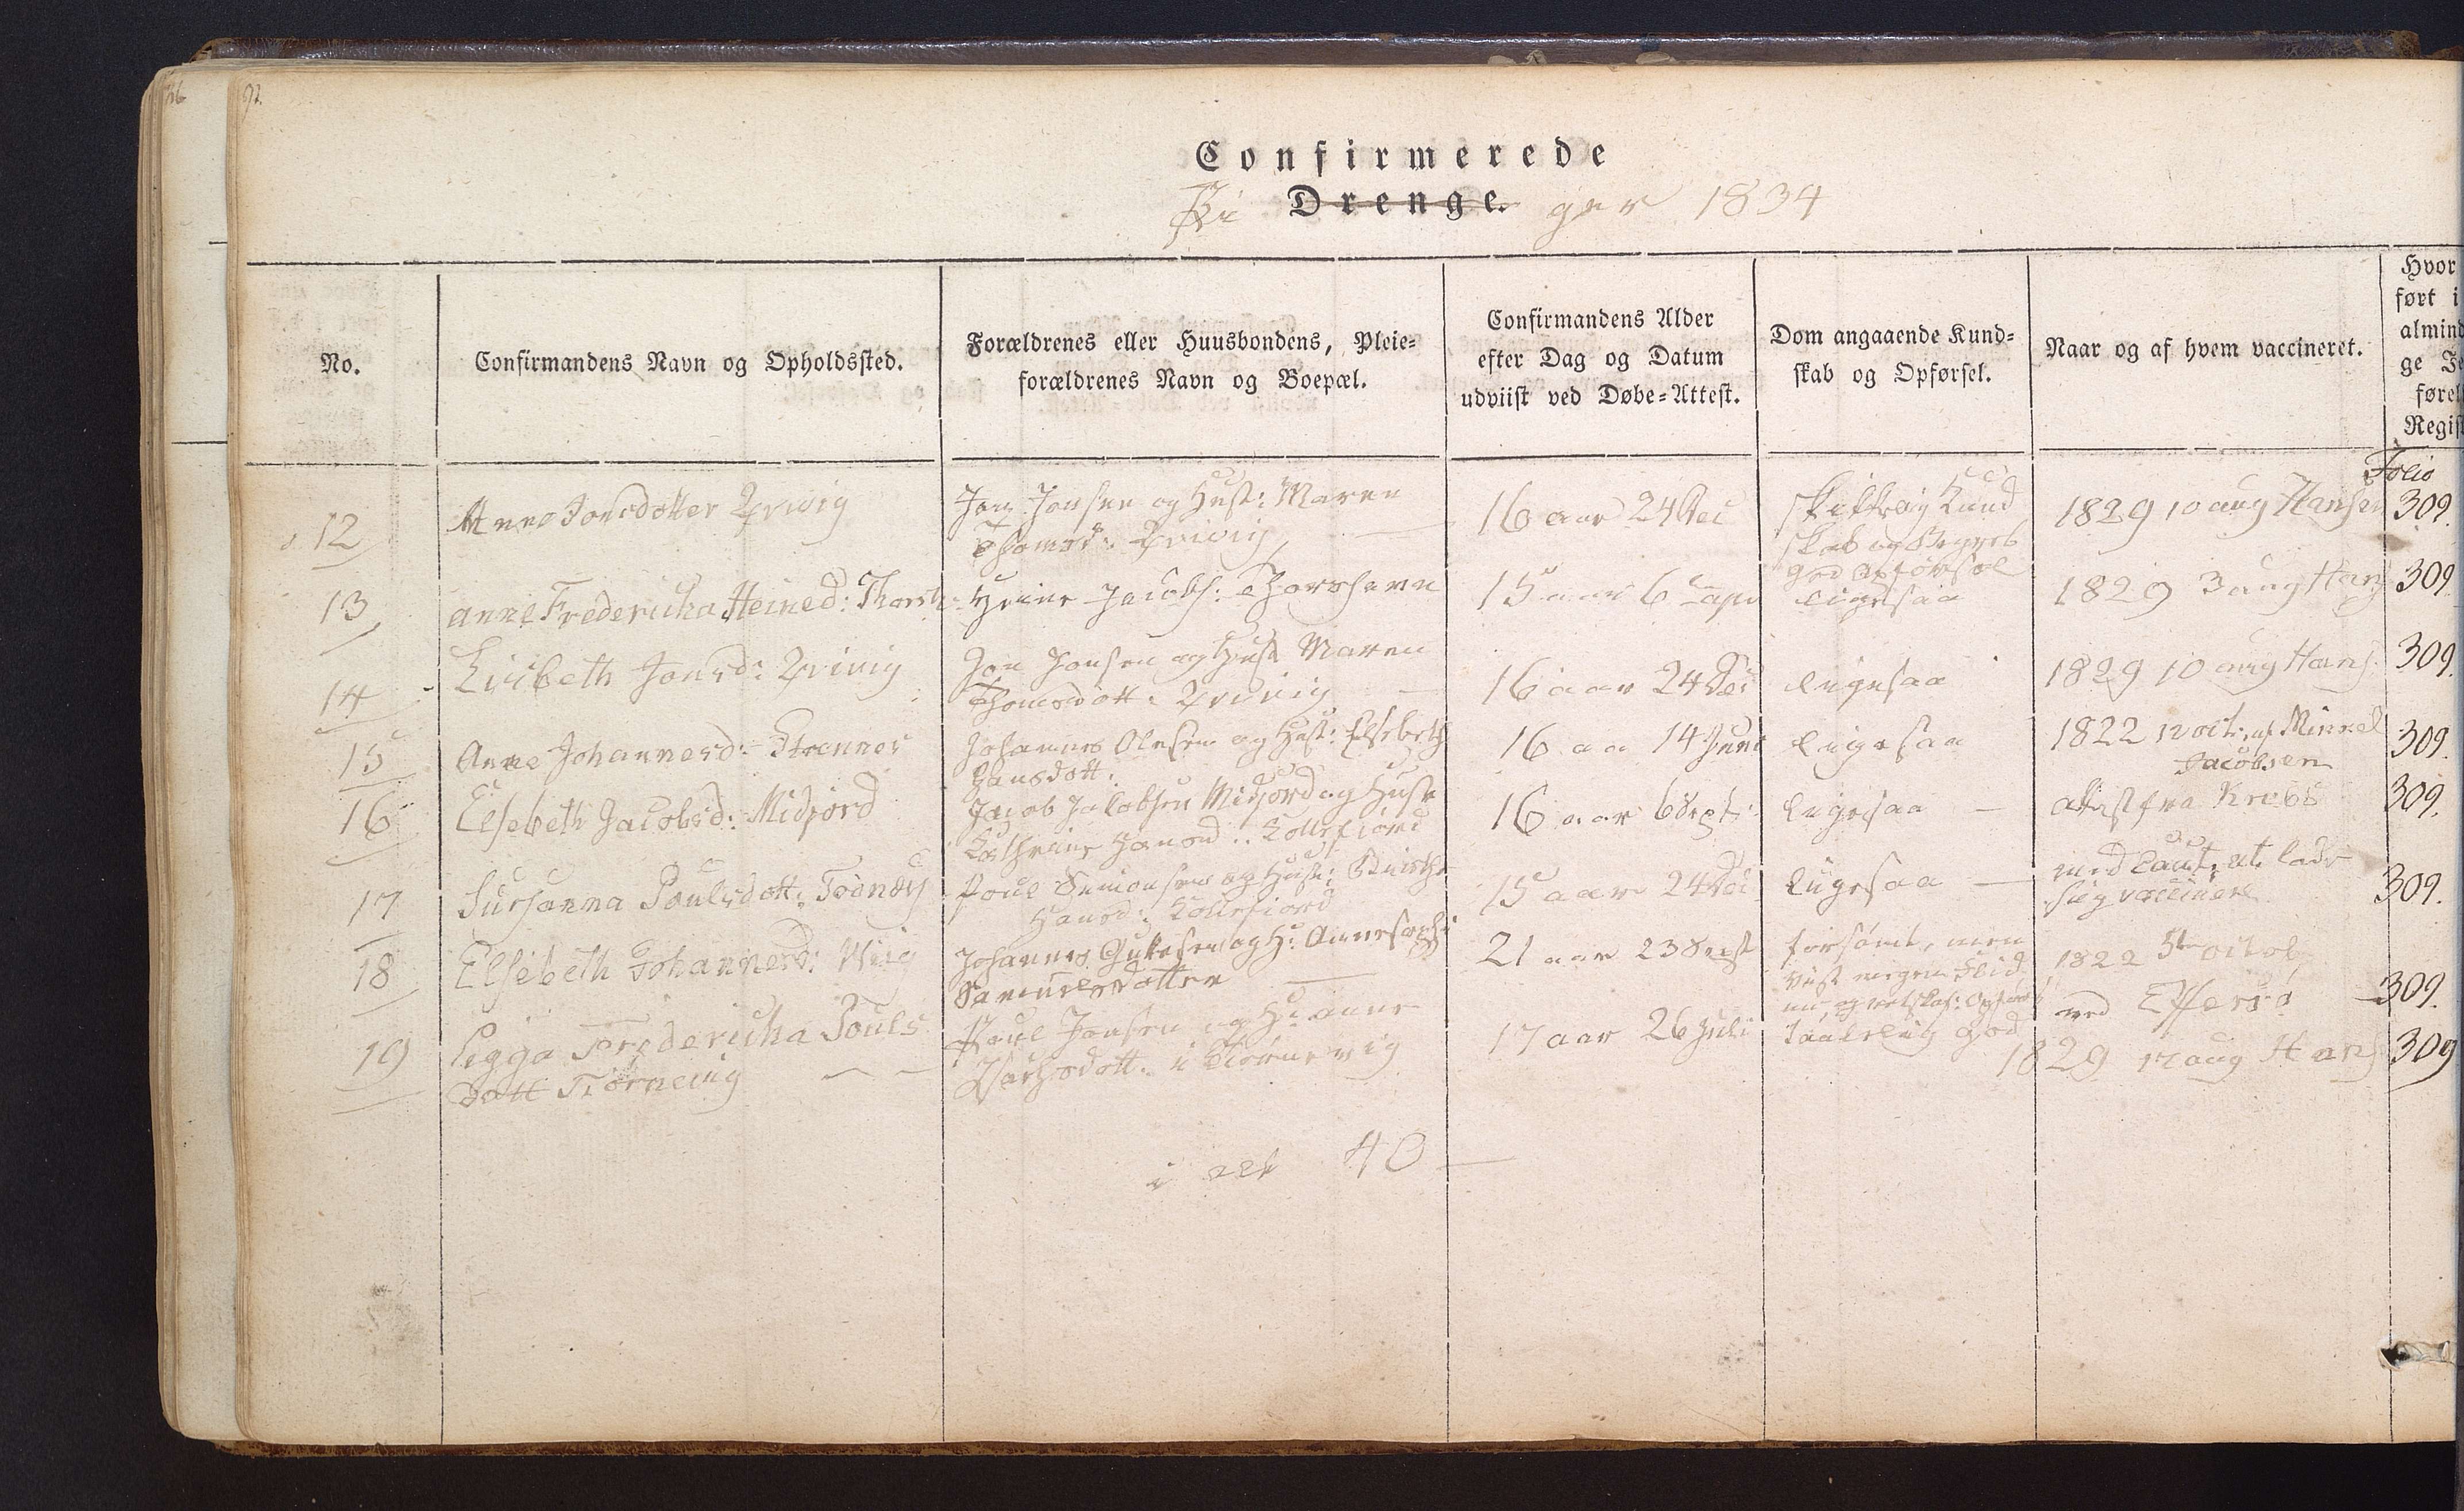 92
Confirmerede
Pi Drenge. ger 1834
No.
Confirmandens Navn og Opholdssted.
Forældrenes eller Huusbondens, Pleie=
forældrenes Navn og Boepæl.
Confirmandens Alder
efter Dag og Datum
udviist ved Døbe=Attest.
Dom angaaende Kund=
skab og Opførsel.
Naar og af hvem vaccineret.
Hvor
ført i
almind
ge Je
førel
Regist
Folio
12
Anne Jonsdotter Qvivig
Jon Jonsen og Hust: Maren
Thomsd: Qvivig
16 aar 24 Dec
skikkelig Kund
skab og Begreb
god Opførsel
1829 10 aug Hansen
309.
13
anne Fredericka Heined: Thorsh:
Heine Jacobs: Thorshavn
15 aar 6 Sapr
ligesaa
1829 3 aug Hans
309
14
Lisbeth Jonsd: Qvivig
Jon Jonsen og Hust Maren
Thomsdott: Qvivig
16 aar 24 Dec
ligesaa
1829 10 aug Hans.
309.
15
Anne Johannesd: Strennes
Johannes Olesen og Hust: Elsebeth
Hansdott:
16 aa 14 Juni
ligesaa
1822 12 oct: af Minnel
Jacobsen
309.
16
Elsebeth Jacobsd: Midfjord
Jacob Jacobsen Midfjord og Hust
Kathrine Hansd: Kollefiord
16 aar 6 Sept:
ligesaa
attest fra Krebs
309.
17
Sursanna Poulsdott:
Poul Simonsen og Hust: Birthe
Hansd: Kollefiord
15 aar 24 Dec
ligesaa
med Caut: at lade
sig vaccinere
309.
18
Elsebeth Johannesd: Viig
Johannes og H: Annesophi
Samuelsdotter
21 aar 23 Sept
forsømt, men
viist megen Flid
nu, og retskaf: Opførsel
1822 5te octob
ved Effersø
309.
19
Pigga Fredericha Pouls
Datt Tiørneviig
Poul Jonsen og H: anne
i Tiørnevig
17 aar 26 Juli
taalelig God
1829 17 aug Hans
309
i alt 40